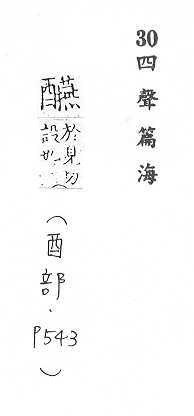 30四聲篇海
醼
於見切
設也
(酉部.P543)